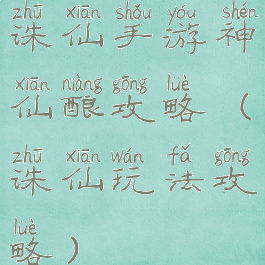 zhū xiān shǒu yóu shén
诛仙手游神
xiān niàng gōng lüè
仙酿攻略（
zhū xiān wán fǎ gōng
诛仙玩法攻
lüè
略）